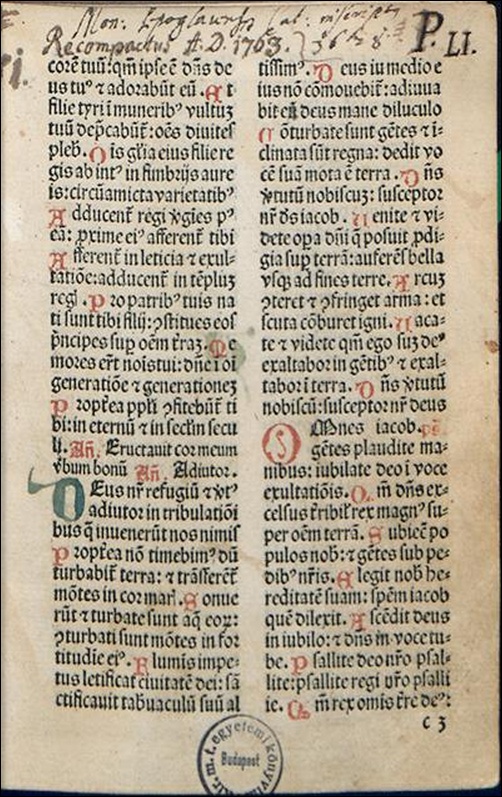 Mon: Lpoglavensis Cat: inscriptus
Recompactus A.D. 1763. } 36 8
P. LI.
corē tuū: qm̄ ipse ē dn̄s de
us tuꝰ ⁊ adorabūt eū. Et
filie tyri ī munerib' vultuʒ
tuū dep̄cabūt̄: oēs diuites
pleb̄. Ois gl̄ia eius filie re
gis ab int' in fimbrijs aure
is: circūamicta varietatib'
Adducent̄ regi ꝟgīes p'
eā: ꝓxime ei' afferent̄ tibi
Afferent̄ in leticia ⁊ exul-
tatiōe: adducent̄ in tēpluʒ
regł. Pro patrib' tuis na
ti sunt tibi filij: ꝯstitues eos
p̄ncipes sup oēm tr̄aʒ. Me
mores er̄t noīs tui: dn̄e ī oī
generatiōe ⁊ generationeʒ
Propt̄ea ppl̄i ꝯfitebūt̄ ti
bi: in eternū ⁊ in sectm̄ secu
lj. An̄. Eructauit cor meum
ꝟbum bonū An̄. Adiutor.
Deus nr̄ refugiū ⁊ ꝟt'
adiutor in tribulatiōi
bus q̄ inuenerūt nos nimis
Propt̄ea nō timebim' dū
turbabit̄ terra: ⁊ trāsferēt̄
mōtes in cor marł. Sonue
rūt ⁊ turbate sunt aq̄ eoꝝ:
ꝯturbati sunt mōtes in for
titudie ei'. Flumis impe-
tus letificat ciuitatē dei: sā
ctificauit tab̄naculū suū al
tissim'. Deus i medio e
ius nō cōmouebit̄: adiuua
bit eū deus mane diluculo
Cōturbate sunt gētes ⁊ i-
clinata sūt regna: dedit vo
cē suā mota ē terra. Dn̄s
ꝟtutū nobiscuʒ: susceptor
nr̄ d̄s iacob. Uenite ⁊ vi-
dete opa dn̄i q̄ posuit ꝓdi-
gia sup terrā: auferēs bella
vsqʒ ad fines terre. Arcuʒ
ꝯteret ⁊ ꝯfringet arma: et
scuta cōburet igni. Uaca-
te ⁊ videte qm̄ ego suʒ de'
exaltabor in gētib' ⁊ exal-
tabor ī terra. Dn̄s ꝟtutū
nobiscū: susceptor nr̄ deus
OMnes iacob. ps̄
gētes plaudite ma-
nibus: iubilate deo ī voce
exultatiōis. Qm̄ dn̄s ex-
celsus t̄ribil̄ rex magn' su-
per oēm terrā. Subiecē po
pulos nob̄: ⁊ gētes sub pe-
dib' nr̄is. Elegit nob̄ he-
reditatē suam: spēm iacob
quē dilexit. Ascēdit deus
in iubilo: ⁊ dn̄s in voce tu-
be. Psallite deo nr̄o psal-
lite: psallite regi nr̄o psalli
te. Qm̄ rex omīs tr̄e de':
c 3
Budapest